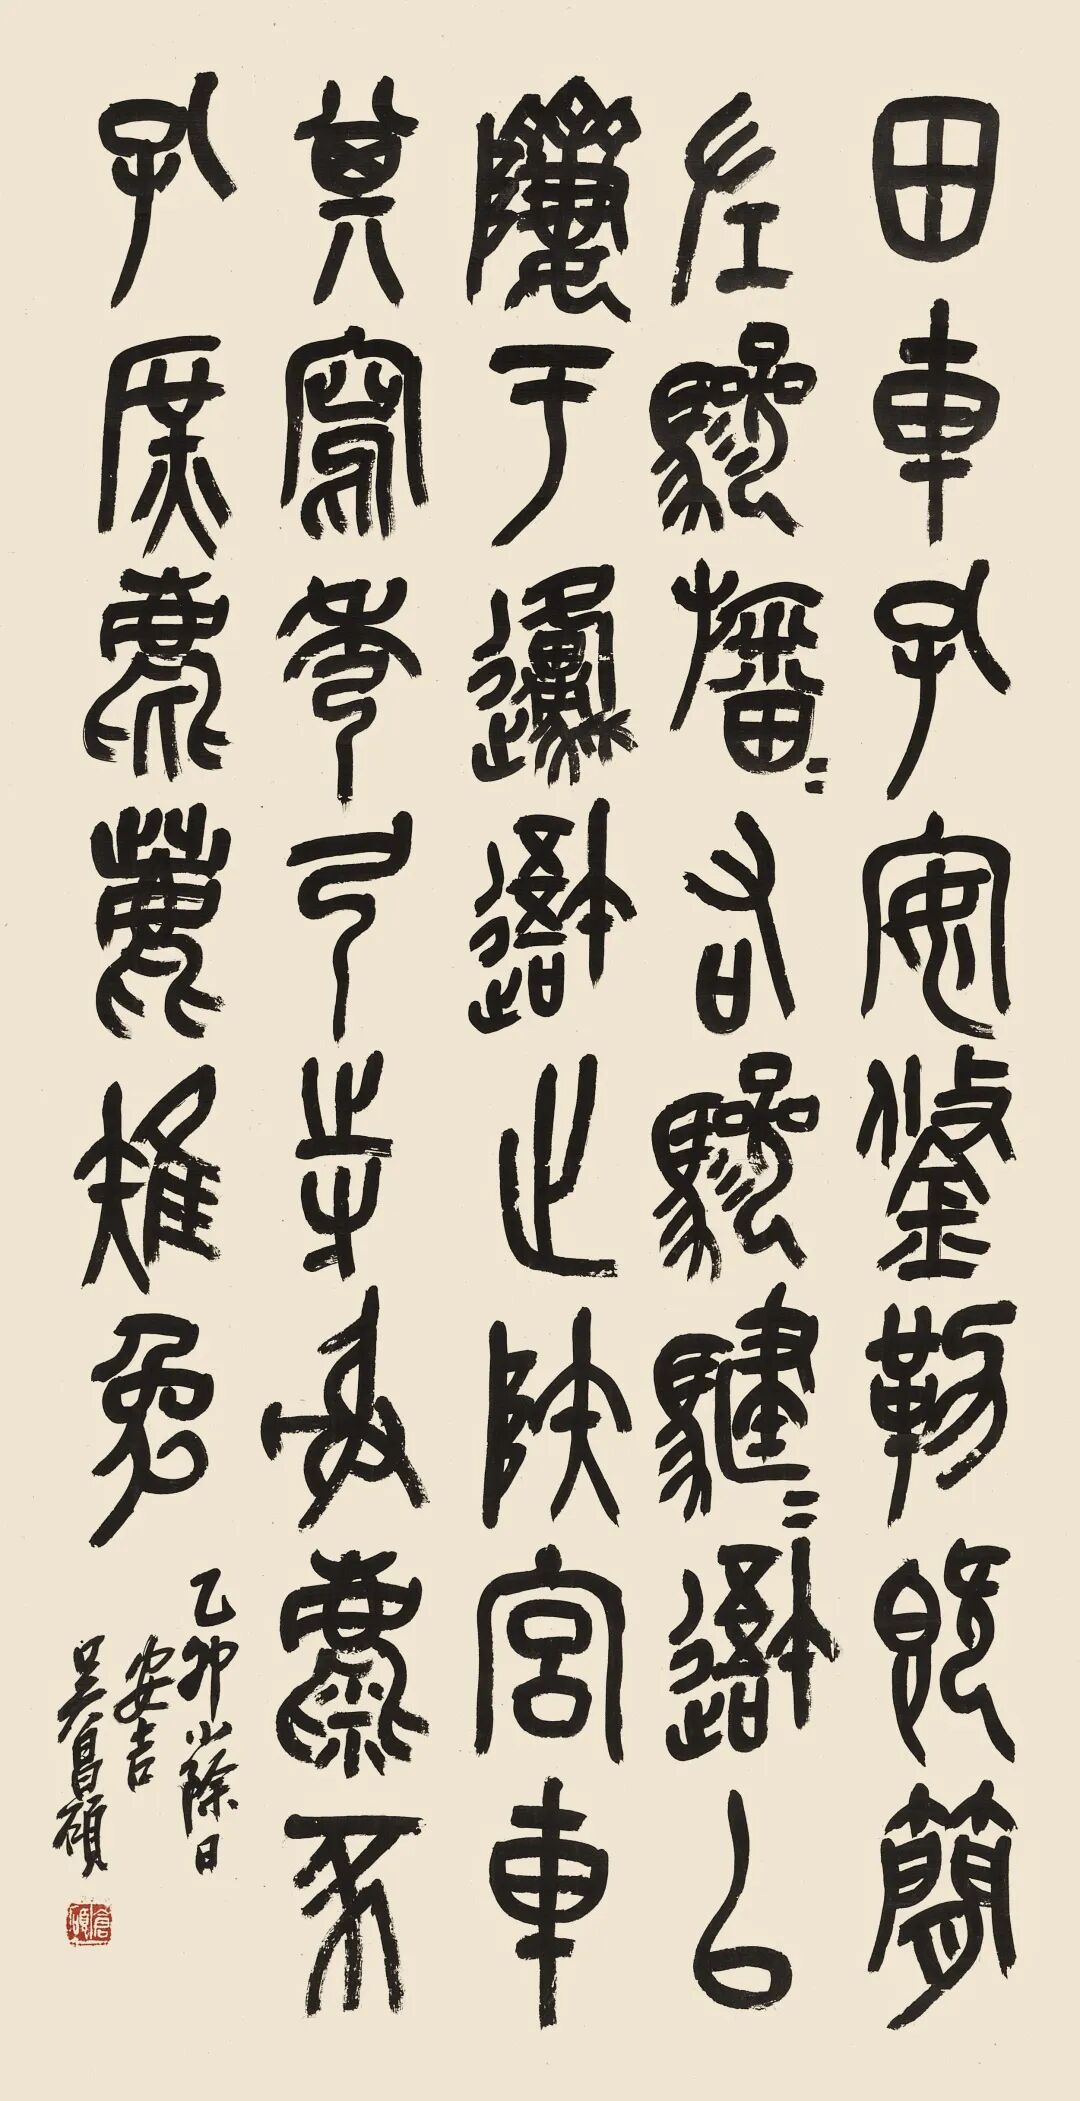 田車孔安鋚勒既簡
左驂旛=右驂騝=吾㠯
隮于邍吾止陝宮車
其寫秀弓寺射麋豕
孔庶麀鹿雉兔
乙卯小除日
安吉
吳昌碩
倉碩